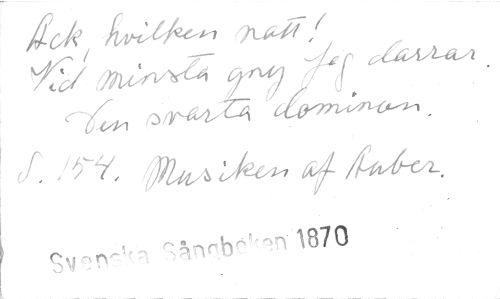 Ack, hvilken natt!
Vid minsta gny jag darrar.
Den svarta dominon.
S. 154. Musiken af Auber.
Svenska Sångboken 1870